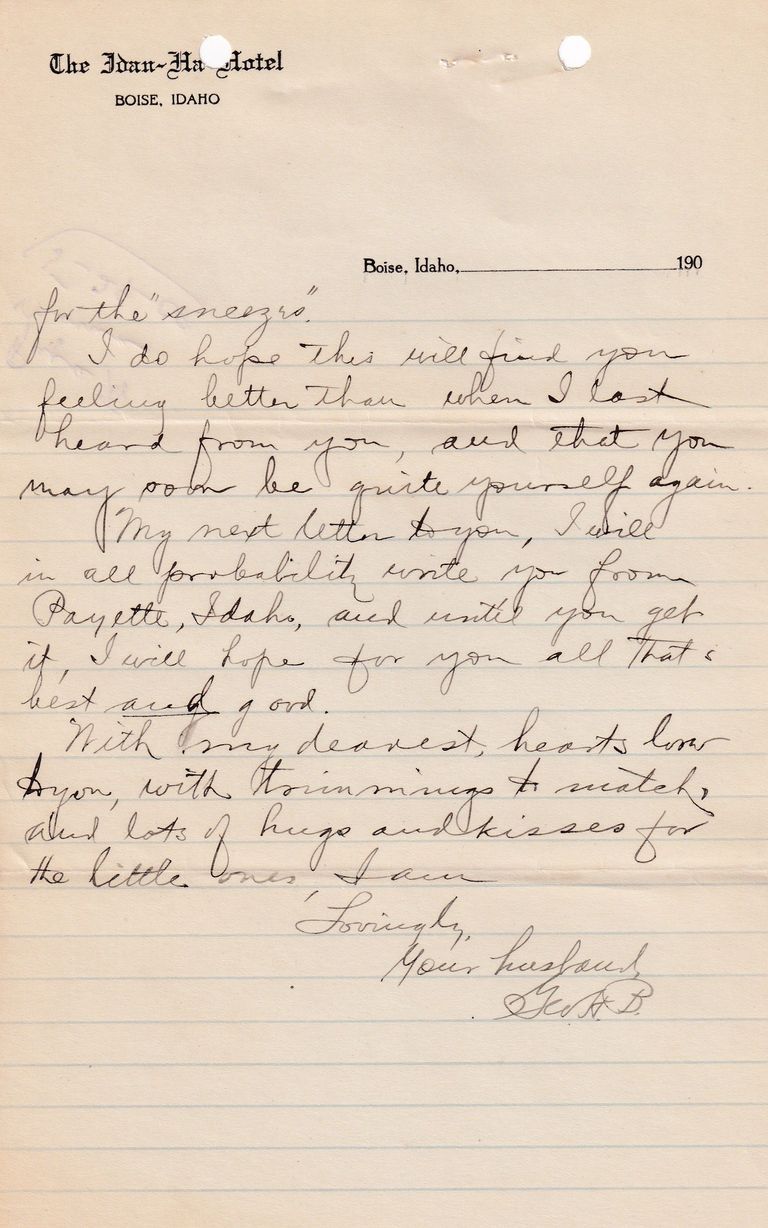 The Idan-Ha Hotel
BOISE, IDAHO
Boise, Idaho, 190
for the "sneezes".
I do hope this will find you
feeling better than when I last
heard from you, and that you
may soon be quite yourself again.
My next letter to you, I will
in all probability write you from
Payette, Idaho, and until you get
it, I will hope for you all that's
best and good.
With my dearest, hearts love
to you, with trimmings to match,
and lots of hugs and kisses for
the little ones, I am
Lovingly,
Your husband,
Geo. H. B.